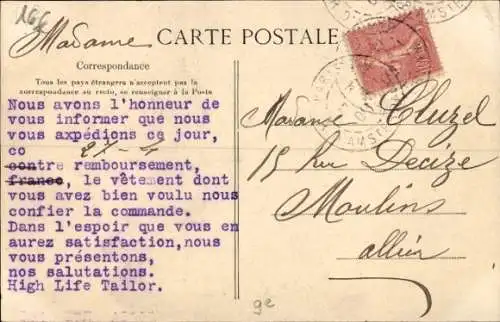 166
Madame
CARTE POSTALE
Correspondance
Tous les pays étrangers n'acceptent pas la
correspondance au recto, se renseigner à la Poste
Nous avons l'honneur de
vous informer que nous
vous axpédions ce jour,
co
contre remboursement,
franco, le vêtement dont
vous avez bien voulu nous
confier la commande.
Dans l'espoir que vous en
aurez satisfaction,nous
vous présentons,
nos salutations.
High Life Tailor.
Madame Cluzel
15 rue Decize
Moulins
allier
ge